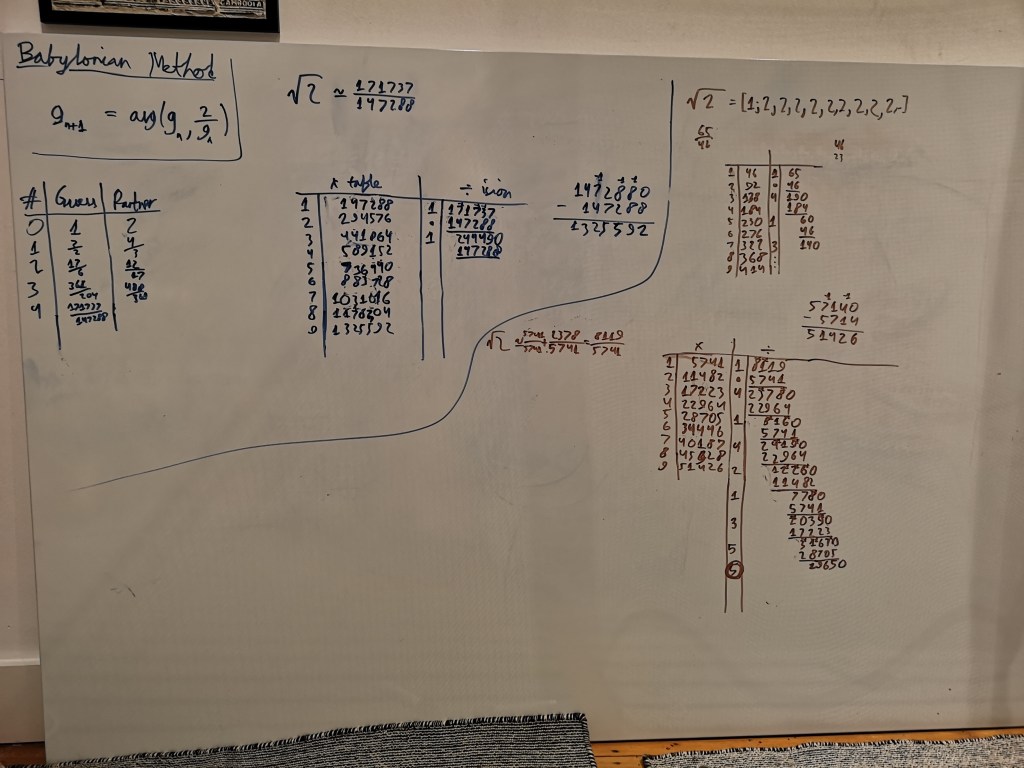 CAMBODIA
Babylonian Method
g_{n+1} = avg(g_n, 2/g_n)
# Guess Partner
0 1 2
1 3/2 4/3
2 17/12
3
4 171737/147288
√2 ≃ 171737/147288
x table ÷ ision
1 147288 1 171737
2 294576 . 147288
3 441864 1 244490
4 589152 147288
5 736440
6
7
8
9 1325592
1472880
- 147288
1325592
√2 = [1;2,2,2,2,2,2,2,2,2,..]
65/46
46
23
1 46 1 65
2 92 . 46
3 138 4 190
4 184 184
5 230 1 60
6 276 46
7 322 3 140
8 368 :
9 414 :
57140
- 5714
51426
√2 ≃ 5741/5741 + 2378/5741 = 8119/5741
x ÷
1 5741 1 8119
2 11482 . 5741
3 17223 4 23780
4 22964 22964
5 28705 1 8160
6 34446 5741
7 40187 4 24190
8 45928 22964
9 51426 2 12260
11482
1 7780
5741
3 20390
17223
5 31670
28705
5 29650